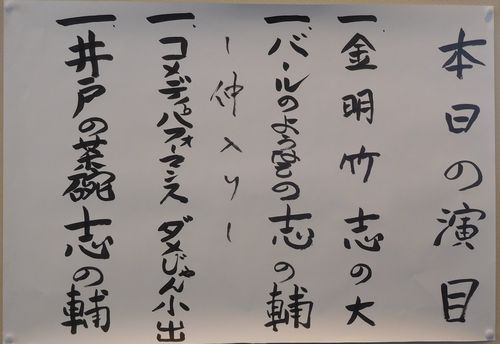 本日の演目
一.金明竹 志の大
一.バールのようなもの 志の輔
ー仲入りー
一.コメディパフォーマンス ダメじゃん小出
一.井戸の茶碗 志の輔